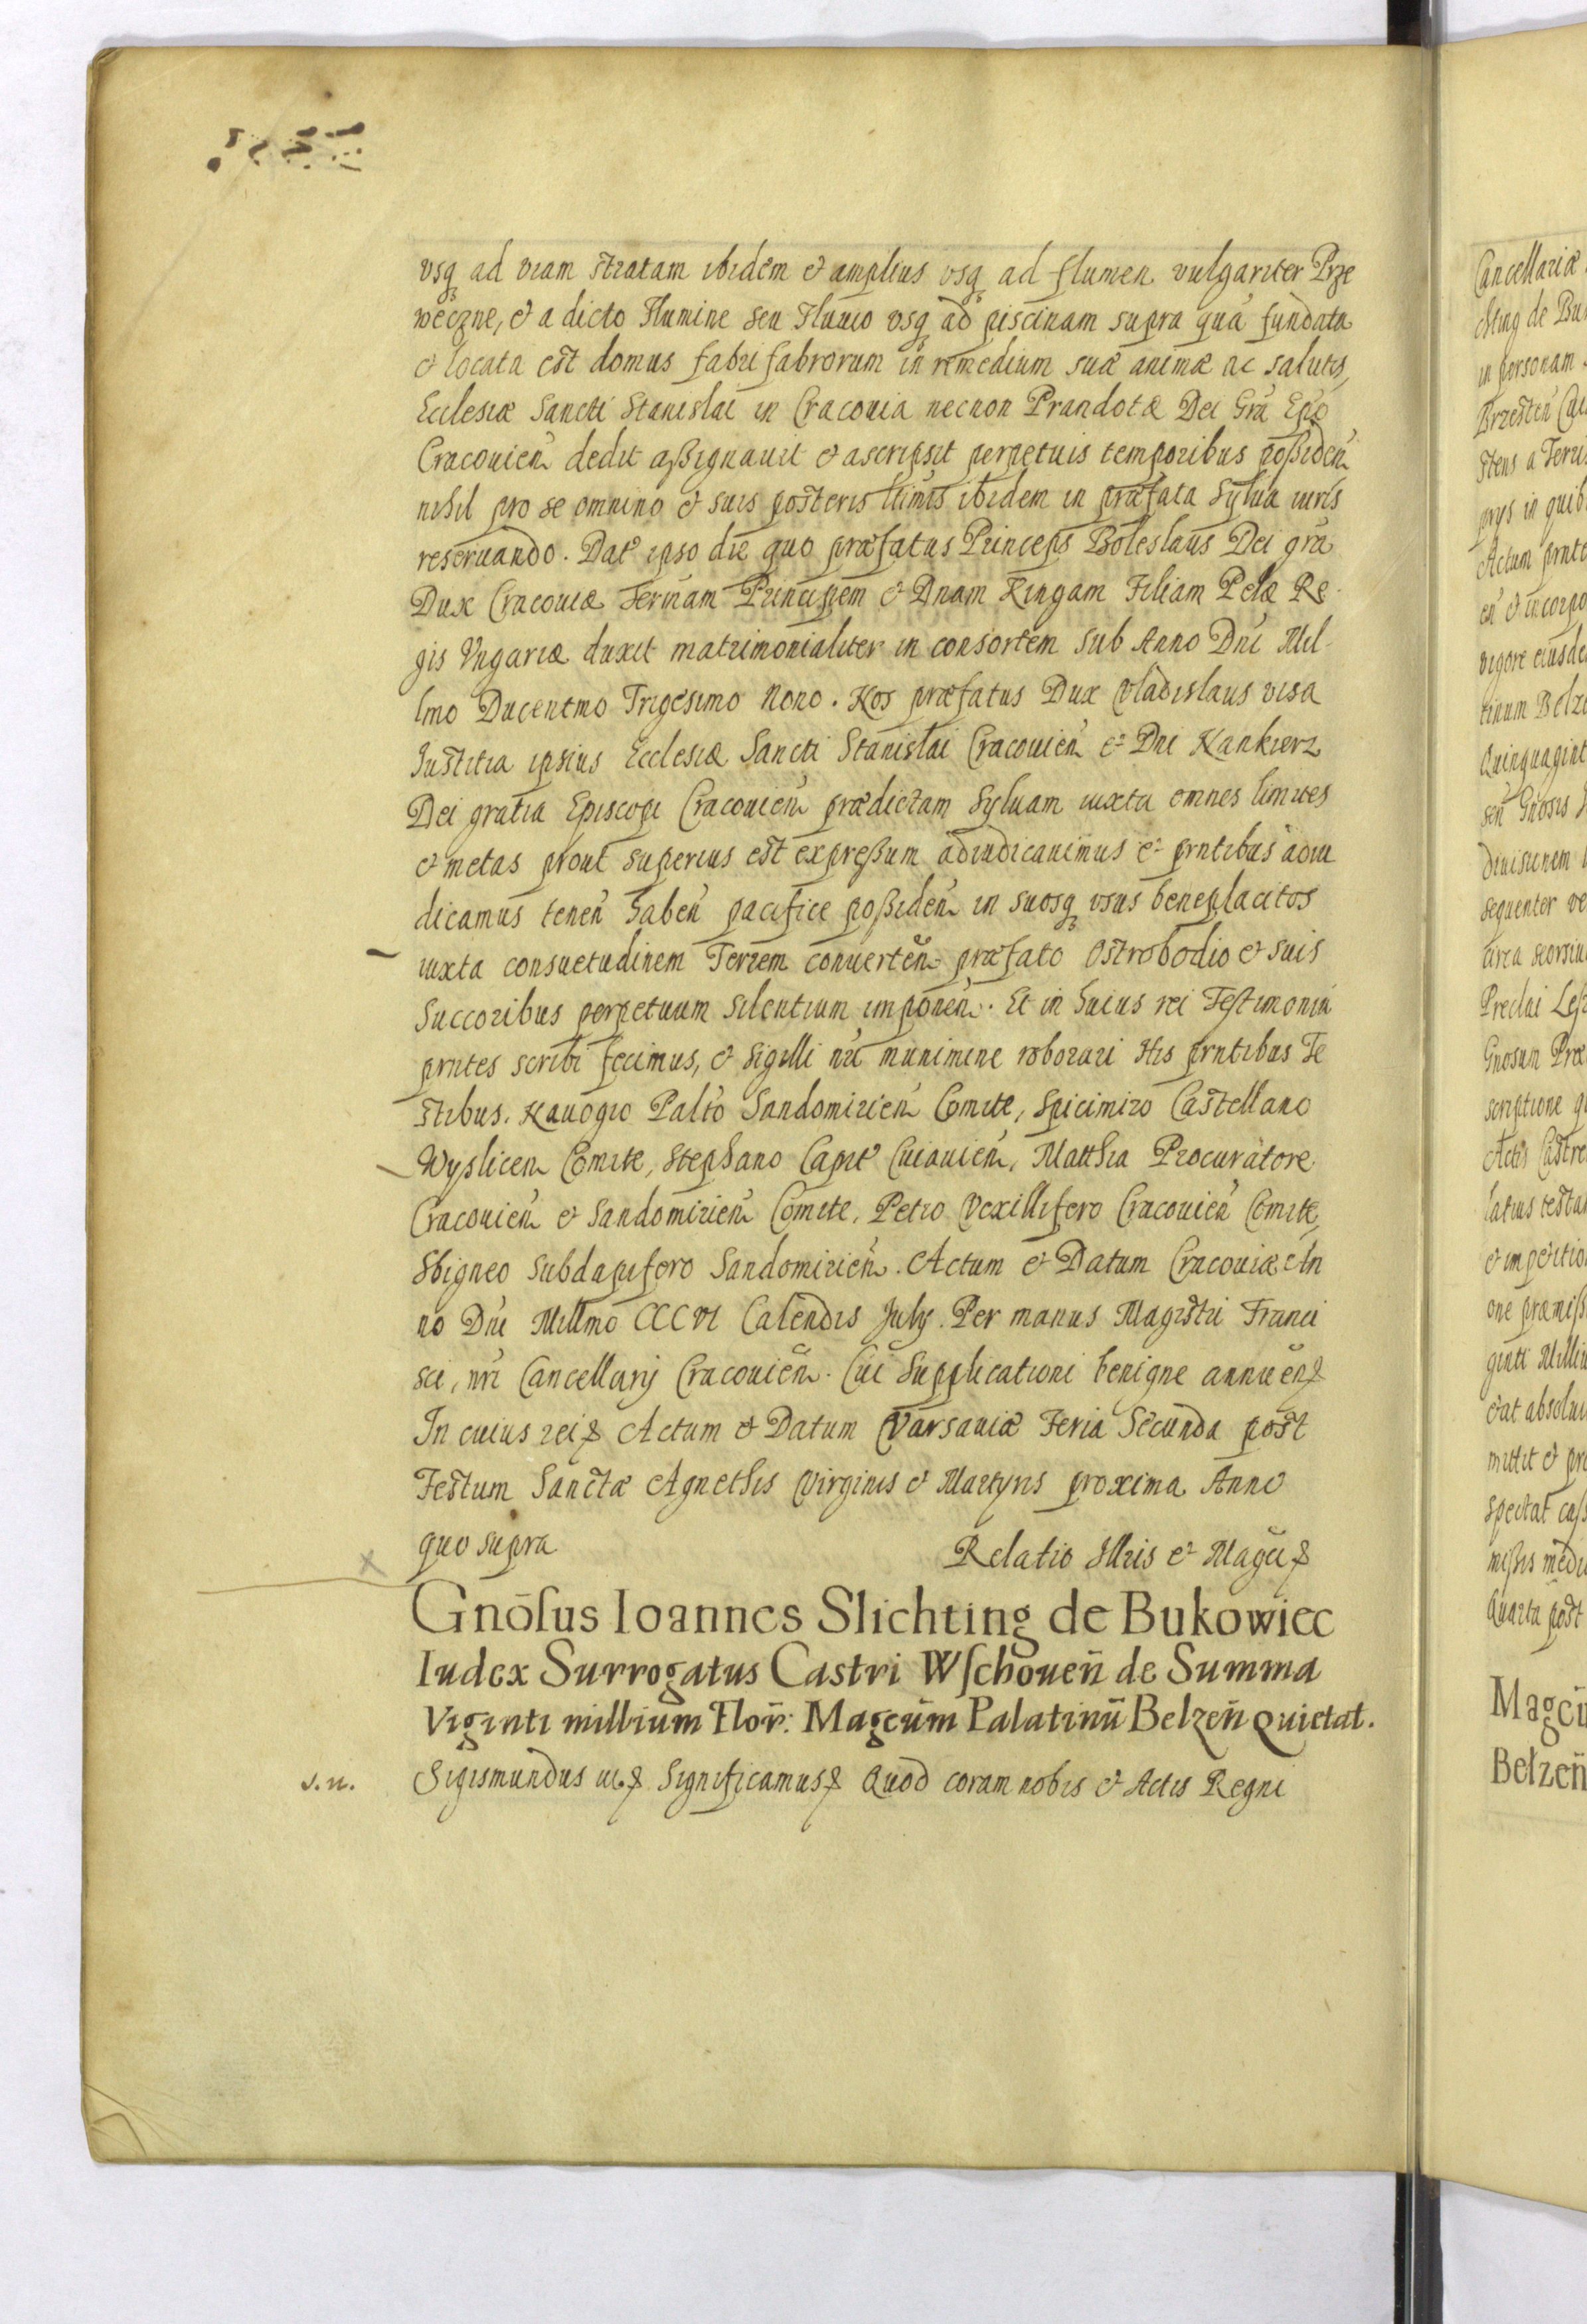 vsq ad viam stratam ibidem et amplius vsq ad flumen vulgariter Prze
weczne, et a dicto Flumine seu Fluuio vsq ad piscinam supra quá fundata
et locata est domus fabri fabrorum in remedium suæ animæ ac salutis,
Ecclesiæ Sancti Stanislai in Cracouia necnon Prandotæ Dei Grã Epõ
Cracouień dedit aßignauit et ascripsit perpetuis temporibus poßideń
nihil pro se omnino et suis posteris ltimis ibidem in præfata Sylua iuris
reseruando. Dat ipso die quo præfatus Princeps Boleslaus Dei grã
Dux Cracouiæ Feruam Principem et Dnam Kingam Filiam Pelæ Re
gis Vngariæ duxit matrimonialiter in consortem sub Anno Dni Mil
lmo Ducentmo Trigesimo Nono. Nos præfatus Dux Vladislaus visa
Iustitia ipsius Ecclesiæ Sancti Stanislai Cracouień et Dni Nankierz
Dei gratia Episcopi Cracouień prædictam Syluam iuxta omnes limites
et metas prout superius est expreßum adiudicauimus et prntibus adiu
dicamus teneń habeń pacifice poßideń in suosq vsus beneplacitos
iuxta consuetudinem Terrem conuerteń præfato Ostrobodio et suis
Succoribus perpetuum silentium imponeń. Et in huius rei Testimoniú
prntes scribi fecimus, et Sigilli nri munimine roborari His prntibus Te
stibus. Nauogio Palto Sandomirień Comite, Spicimiro Castellano
Wyslicen Comite, Stephano Capit Cuiauień, Matthia Procuratore
Cracouień et Sandomirień Comite, Petro Vexillifero Cracouień Comite,
Sbigneo Subdapifero Sandomirień. Actum et Datum Cracouiæ An
no Dni Millmo CCCVI Calendis July. Per manus Magistri Franci
sci, nri Cancellarij Cracouień. Cui Supplicationi benigne annueń &
In cuius rei & Actum et Datum Varsauiæ Feria Secunda post
Festum Sanctæ Agnethis Virginis et Martyris proxima Anno
quo supra Relatio Illris et Magci &
Gnõsus Ioannes Slichting de Bukowiec
Iudex Surrogatus Castri Wschoueñ de Summa
Viginti millium Flor: Magcum Palatinũ Belzeñ Quietat.
s.n. Sigismundus III & Significamus & Quod coram nobis et Actis Regni